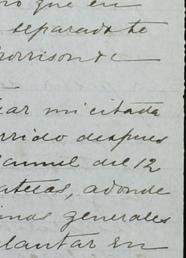 que en
separada te
orrison de
ar mi citada
rrido despues
anuel del 12
atelas, adonde
inas generales
plantar en